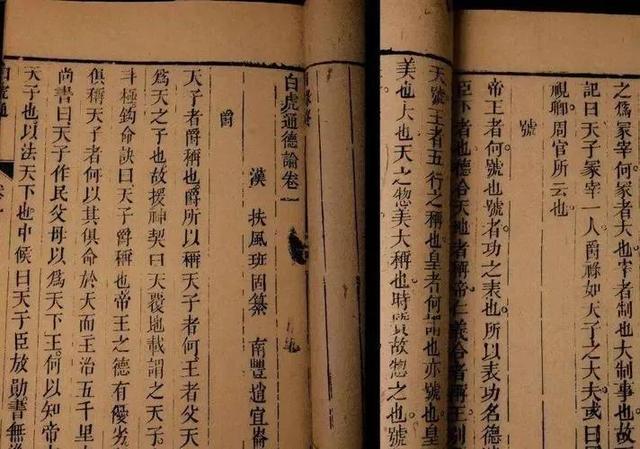 白虎通德論卷一
漢 扶風班固纂 南豐趙宜崙
爵
天子者爵稱也爵所以稱天子者何王者父天
為天之子也故援神契曰天覆地載謂之天子
斗極鈎命訣曰天子爵稱也帝王之德有優劣
俱稱天子者何以其俱命於天而王治五千里
尚書曰天子作民父母以爲天下王何以知帝
天子也以法天下也中候曰天子臣放勛書無
白虎通
卷一
之爲冢宰何冢者大也宰者制也大制事也故
記曰天子冢宰一人爵祿如天子之大夫或曰
視卿周官所云也
號
帝王者何號也號者功之表也所以表功名德
臣下者也德合天地者稱帝仁義合者稱王別
天號王者五行之稱也皇者何謂也亦號也皇
美也大也天之惣美大稱也時質故惣之也號